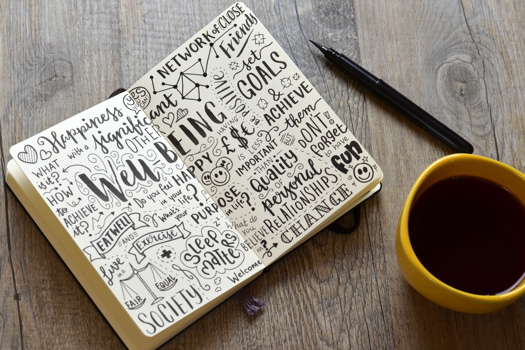 Happiness
with a significant
OTHER?
WHAT
is it?
HOW
to
ACHIEVE
it?
Well-BEING
Do you feel
in your
in your
What's
life?
EAT WELL
AND
Exercise
live
in a
FAIR
EQUAL
SOCIETY
Sleep
MATTERS
Welcome
NETWORK of CLOSE
Friends
set
GOALS
&
ACHIEVE
them
HAVING
£$€
IS LESS
IMPORTANT
THAN
Quality
of
personal
RELATIONSHIPS
DON'T
forget
to have
fun
HAPPY
PURPOSE
in it?
What do
you
BELIEVE
in?
CHANGE